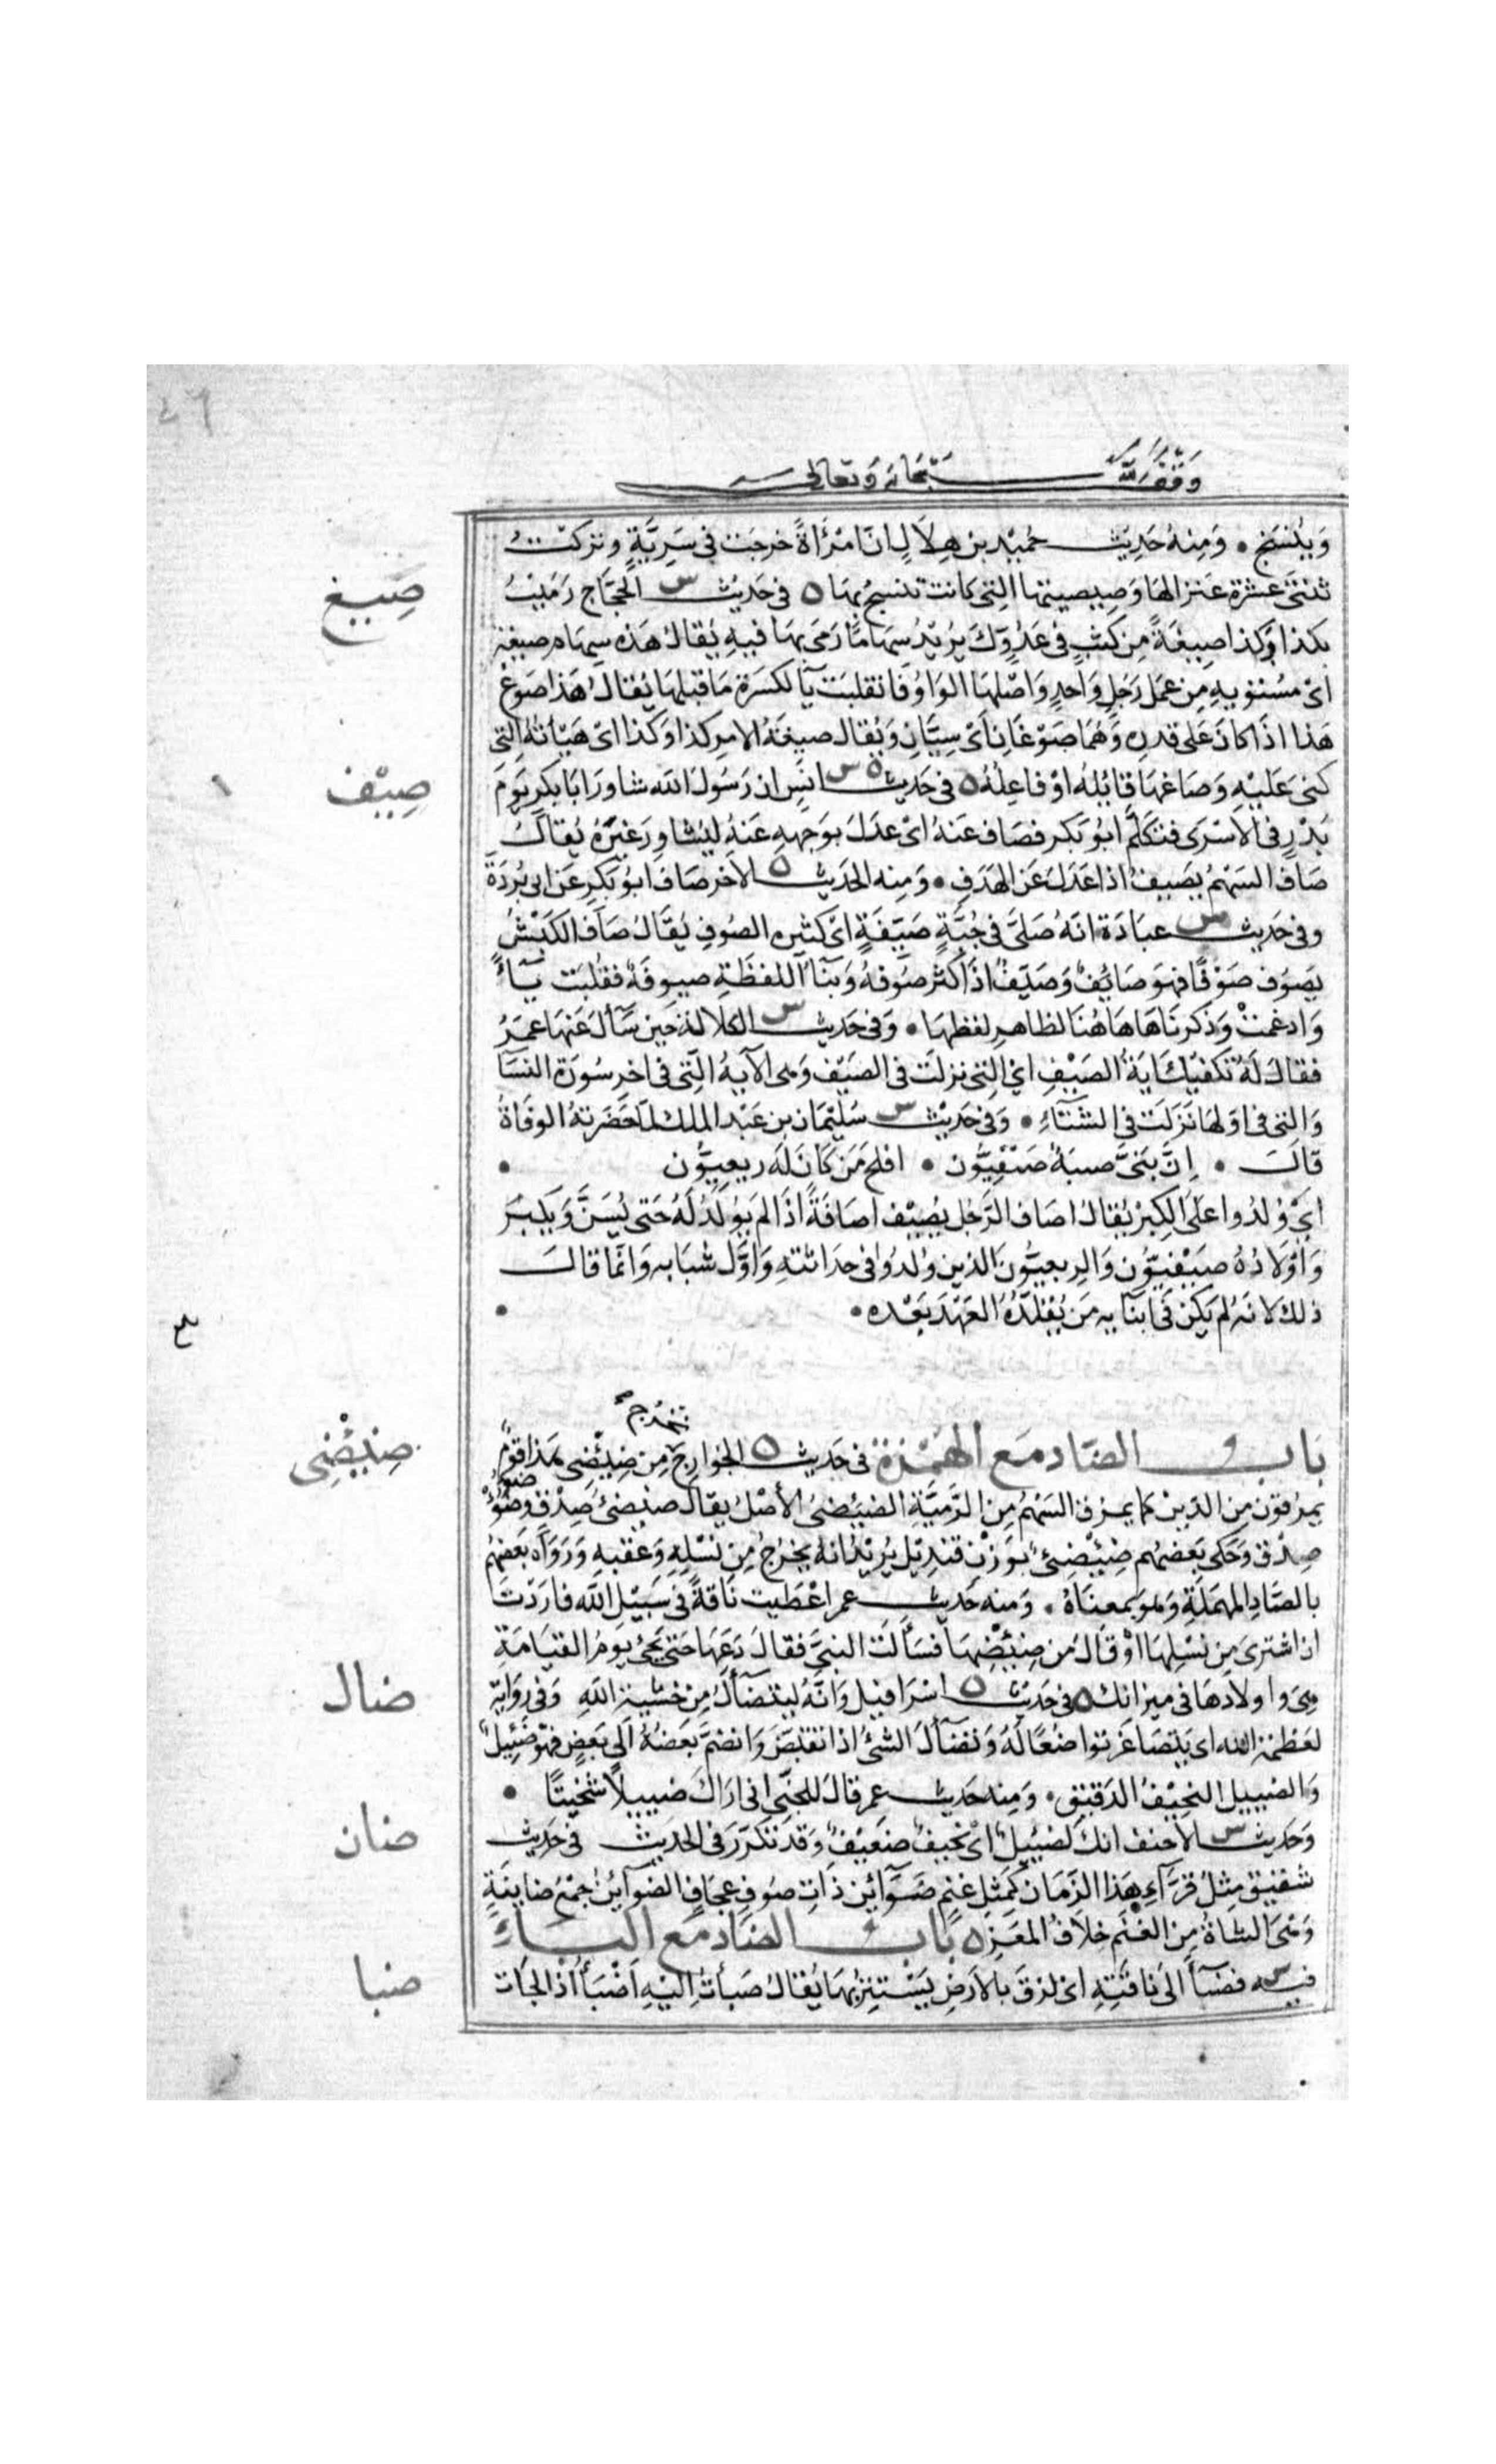 وقف لله سبحانه وتعالى
وينسج • ومنه حديث حميد بن هلال ان امرأة خرجت في سرية وتركت
ثنتي عشرة عنزا لها وصيصيتها التي كانت تنسج بها ه في حديث س الحجاج رميت
صيغ
بكذا وكذا صيغة من كثب في عدوك يريد سهاما رمى بها فيه يقال هذه سهام صيغة
اى مستوية من عمل رجل واحد واصلها الواو فانقلبت ياء لكسرة ما قبلها يقال هذا صوغ
هذا اذا كان على قدره وهما صوغان اى سيان ويقال صيغة الامر كذا وكذا اى هيأته التي
بني عليه وصاغها قائله او فاعله ه في حديث ه س انس ان رسول الله شاور ابا بكر يوم
صيف
بدر في الاسرى فتكلم ابو بكر فصاف عنه اى عدل بوجهه عنه ليشاور غيره يقال
صاف السهم يصيف اذا عدل عن الهدف • ومنه الحديث ه الاخر صاف ابو بكر عن ابى بردة
وفي حديث س عبادة انه صلى في جبة صيفة اى كثيرة الصوف يقال صاف الكبش
يصوف صوفا فهو صائف وصيف اذا كثر صوفه وبناء اللفظة صيوفة فقلبت ياء
وادغمت وذكرناها هاهنا لظاهر لفظها • وفي حديث س الكلالة حين سأل عنها عمر
فقال له تكفيك اية الصيف اي التي نزلت في الصيف وهى الآية التي في اخر سورة النسا
والتي في اولها نزلت في الشتاء • وفي حديث س سليمان بن عبد الملك لما حضرته الوفاة
قال • إن بني صبية صيفيون • افلح من كان له ربعيون •
اي ولدوا على الكبر يقال اصاف الرجل يصيف اصافة اذا لم يولد له حتى يسن ويكبر
واولاده صيفيون والربعيون الذين ولدوا في حداثته واول شبابه وانما قال
ذلك لانه لم يكن في ابنائه من يقلده العهد بعده •
باب الضاد مع الهمزة في حديث ه الخوارج يخرج من ضئضى هذا قوم
ضئضى
يمرقون من الدين كما يمرق السهم من الرمية الضئضئ الأصل يقال ضئضئ صدق وضؤضؤ
صدق وحكى بعضهم ضئضئ بوزن قنديل يريد انه يخرج من نسله وعقبه ورواه بعضهم
بالصاد المهملة وهو بمعناه • ومنه حديث عمر اعطيت ناقة في سبيل الله فاردت
ان اشترى من نسلها او قال من ضئضئها فسألت النبي فقال دعها حتى تجئ يوم القيامة
هى واولادها في ميزانك ه في حديث ه اسرافيل وانه ليتضأل من خشية الله وفي رواية
ضال
لعظمة الله اى يتصاغر تواضعا له وتضأل الشئ اذا نقبض وانضم بعضه الى بعض فهو ضئيل
والضييل النحيف الدقيق • ومنه حديث عمر قال للجني اني اراك ضييلا شخيتا •
وحديث س الاحنف انك لضئيل اي نحيف ضعيف وقد تكرر في الحديث في حديث
ضان
شقيق مثل قراء هذا الزمان كمثل غنم ضوائن ذات صوف عجاف الضوائن جمع ضاينة
وهى الشاة من الغنم خلاف المعز ه باب الضاد مع الباء
فيه س فضبأ الى ناقته اى لزق بالارض يستتر بها يقال ضبأت اليه اضبأ اذا لجات
ضبا